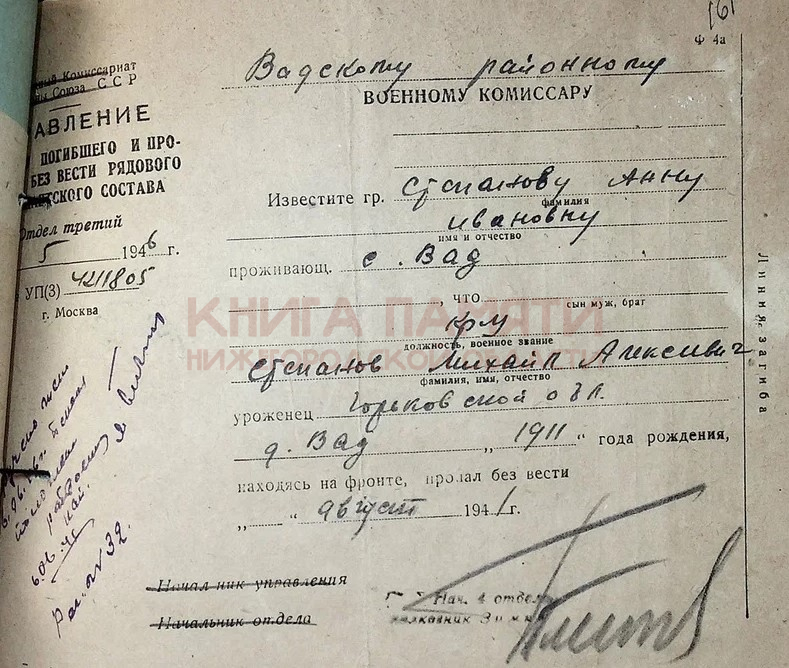 161
Ф 4а
ный Комиссариат
ны Союза ССР
АВЛЕНИЕ
ПОГИБШЕГО И ПРО-
БЕЗ ВЕСТИ РЯДОВОГО
НТСКОГО СОСТАВА
Отдел третий
5 1946 г.
УП(3) 4211805
г. Москва
Вадскому районному
ВОЕННОМУ КОМИССАРУ
Известите гр. Степанову Анну
фамилия
Ивановну
имя и отчество
проживающ. с. Вад
, что
сын муж, брат
Кр-ц
должность, военное звание
Степанов Михаил Алексевич
фамилия, имя, отчество
уроженец Горьковской обл.
д. Вад „ 1911 “ года рождения,
находясь на фронте, пропал без вести
„ “ август 1941 г.
Начальник управления
Начальник отдела
Нач. 4 отдела
КНИГА ПАМЯТИ
НИЖЕГОРОДСКОЙ ОБЛАСТИ
Линия загиба
6.06.46